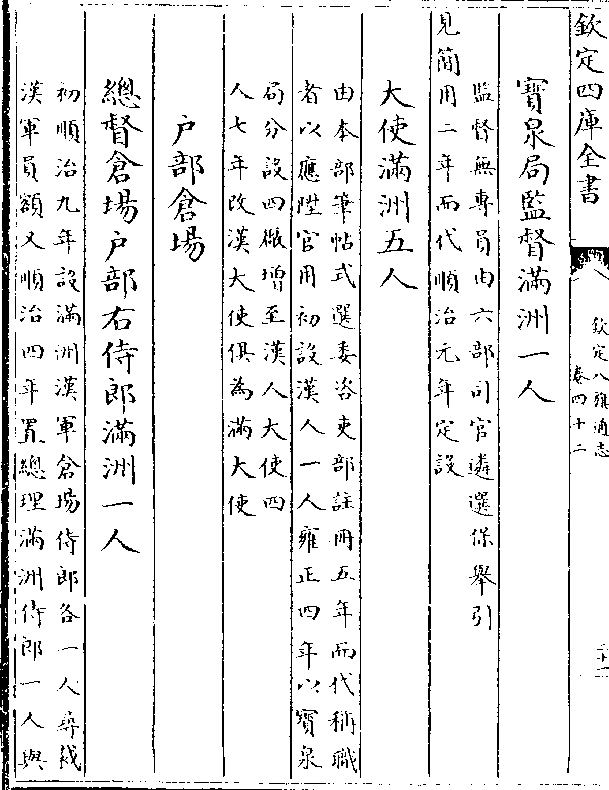 欽定四庫全書
欽定八旗通志
卷四十二
寶泉局監督滿洲一人
監督無專員由六部司官遴選保舉引
見簡用二年而代順治元年定設
大使滿洲五人
由本部筆帖式選委咨吏部註冊五年而代稱職
者以應陞官用初設漢人一人雍正四年以寶泉
局分設四廠增至漢人大使四
人七年改漢大使俱為滿大使
户部倉場
總督倉場户部右侍郎滿洲一人
初順治九年設滿洲漢軍倉場侍郎各一人尋裁
漢軍員額又順治四年置總理滿洲侍郎一人與